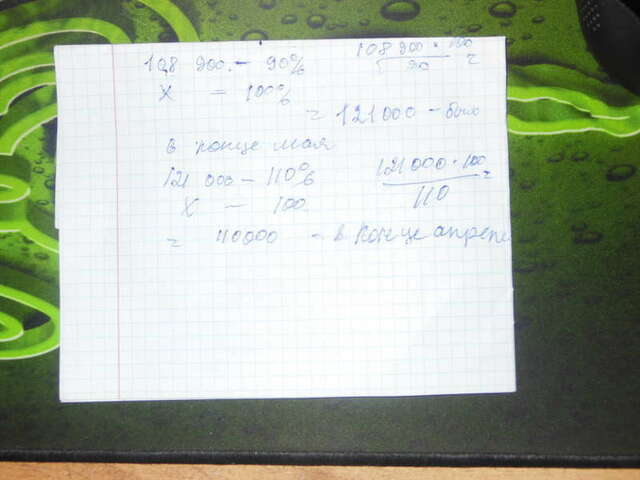 108 900. - 90%
X = 100%
108 900 × 100 / 90 =
= 121000 - было
в конце мая
121 000 - 110%
X - 100.
121 000 · 100 / 110 =
= 110000 - в конце апреле